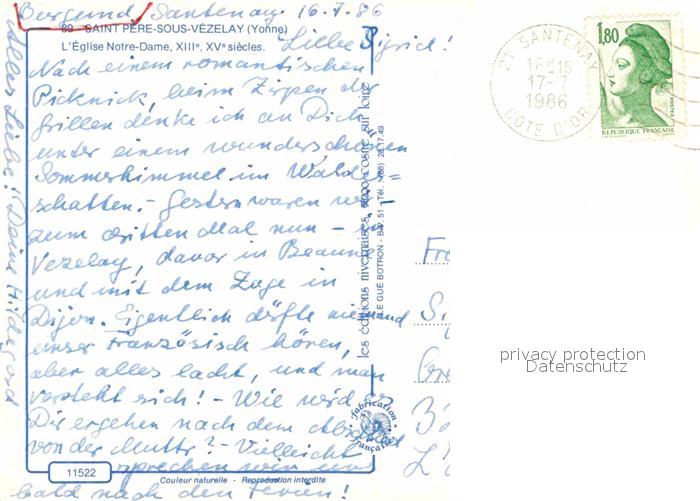 Burgund, Santenay 16.7.86
89 - SAINT PÈRE-SOUS-VÉZELAY (Yonne)
L'Église Notre-Dame, XIIIe, XVe siècles.
Liebe Sigrid!
Nach einem romantischen
Picknick, beim Zirpen der
Grillen denke ich an Dich
unter einem wunderschönen
Sommerhimmel im Waldes=
schatten. - Gestern waren wir
zum dritten Mal nun - in
Vezelay, davor in Beaune
und mit dem Zuge in
Dijon. Eigentlich dürfte niemand
unser Französisch hören,
aber alles lacht, und man
versteht sich! - Wie wird es
Dir ergehen nach dem Abschied
von der Mutter? - Vielleicht
sprechen wir uns
bald nach den Ferien!
Alles Liebe! Deine Hildegard
11522
Couleur naturelle - Reproduction interdite
les éditions nivernaises, 58200 cosne sur loire
LE GUÉ BOTRON - B.P. 51 - Tél. (86) 28.17.49
Fabrication Française
21 SANTENAY
16H15
17-7
1986
COTE D'OR
1,80
POSTES
REPUBLIQUE FRANÇAISE
privacy protection
Datenschutz